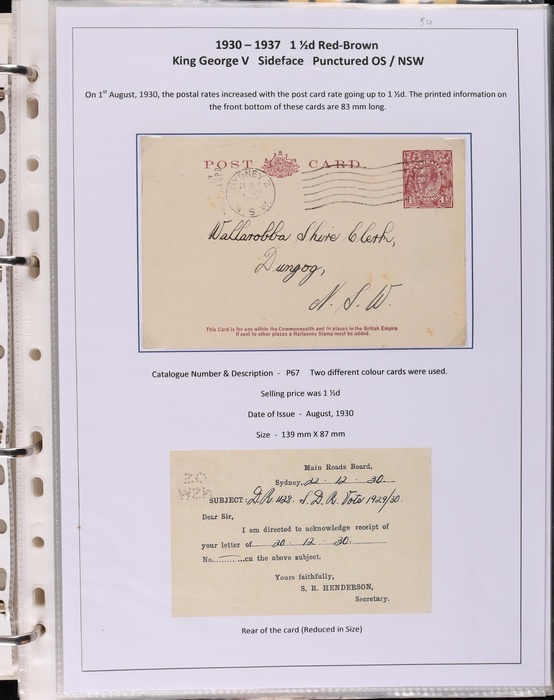 50
1930 – 1937 1 ½d Red-Brown
King George V Sideface Punctured OS / NSW
On 1st August, 1930, the postal rates increased with the post card rate going up to 1 ½d. The printed information on
the front bottom of these cards are 83 mm long.
POST CARD.
SYDNEY
N.S.W.
Wallarobba Shire Clerk,
Dungog,
N. S. W.
This Card is for use within the Commonwealth and to places in the British Empire
If sent to other places a Halfpenny Stamp must be added.
Catalogue Number & Description - P67 Two different colour cards were used.
Selling price was 1 ½d
Date of Issue - August, 1930
Size - 139 mm X 87 mm
Main Roads Board,
Sydney, 22 . 12 . 30.
SUBJECT: D.R. 1128. S.D.R. Vote 1929/30.
Dear Sir,
I am directed to acknowledge receipt of
your letter of 20 . 12 . 30.
No. ........ on the above subject.
Yours faithfully,
S. R. HENDERSON,
Secretary.
Rear of the card (Reduced in Size)